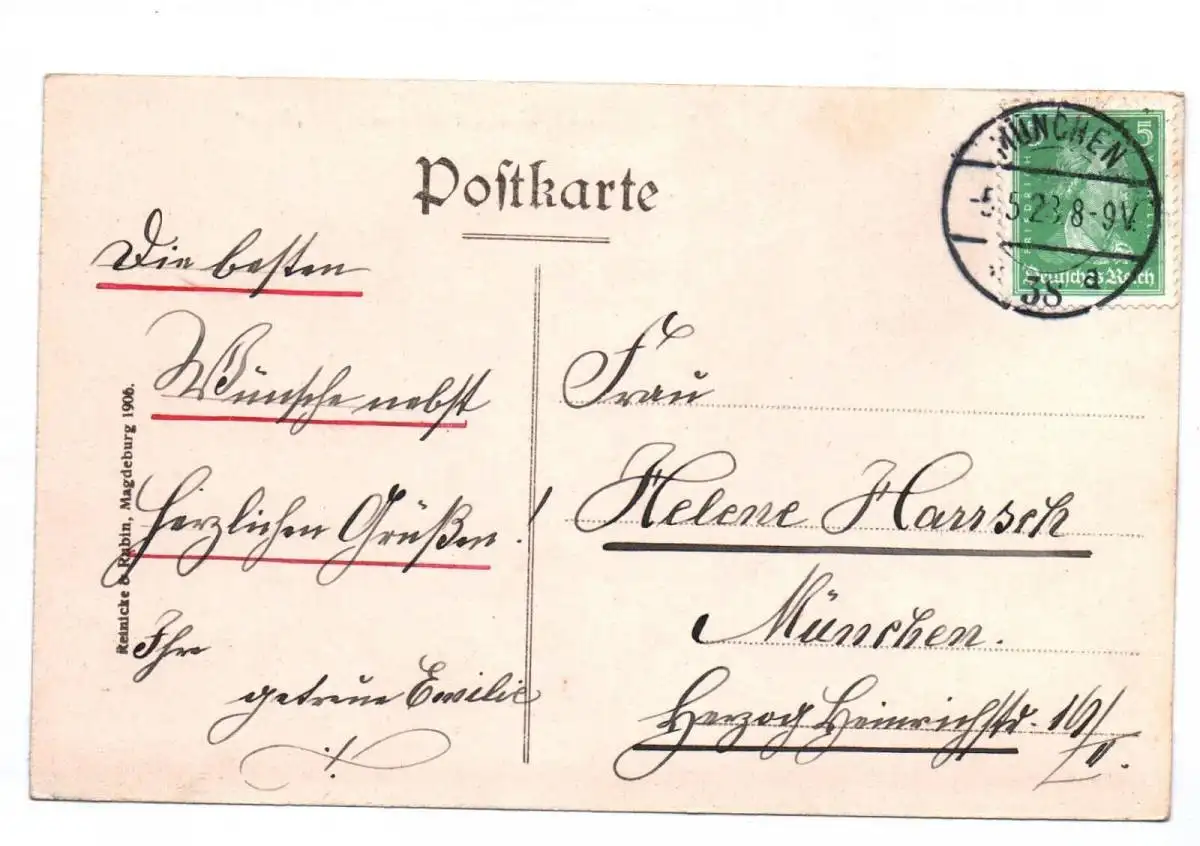 Postkarte
MÜNCHEN
-5.5.28 8-9V.
38 a
5
FRIEDRICH
Deutsches Reich
Die besten
Wünsche nebst
herzlichen Grüßen!
Ihre
getreue Emilie
Reinicke & Rubin, Magdeburg 1906.
Frau
Helene Harrsch
München.
Herzog Heinrichstr.